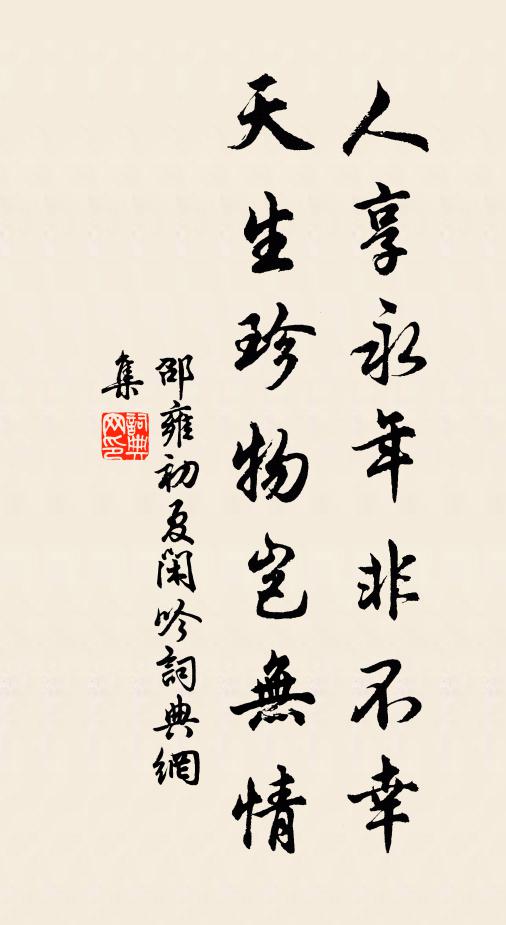 人享永年非不幸
天生珍物豈無情
邵雍初夏閑吟詞典網
集
詞典
网印